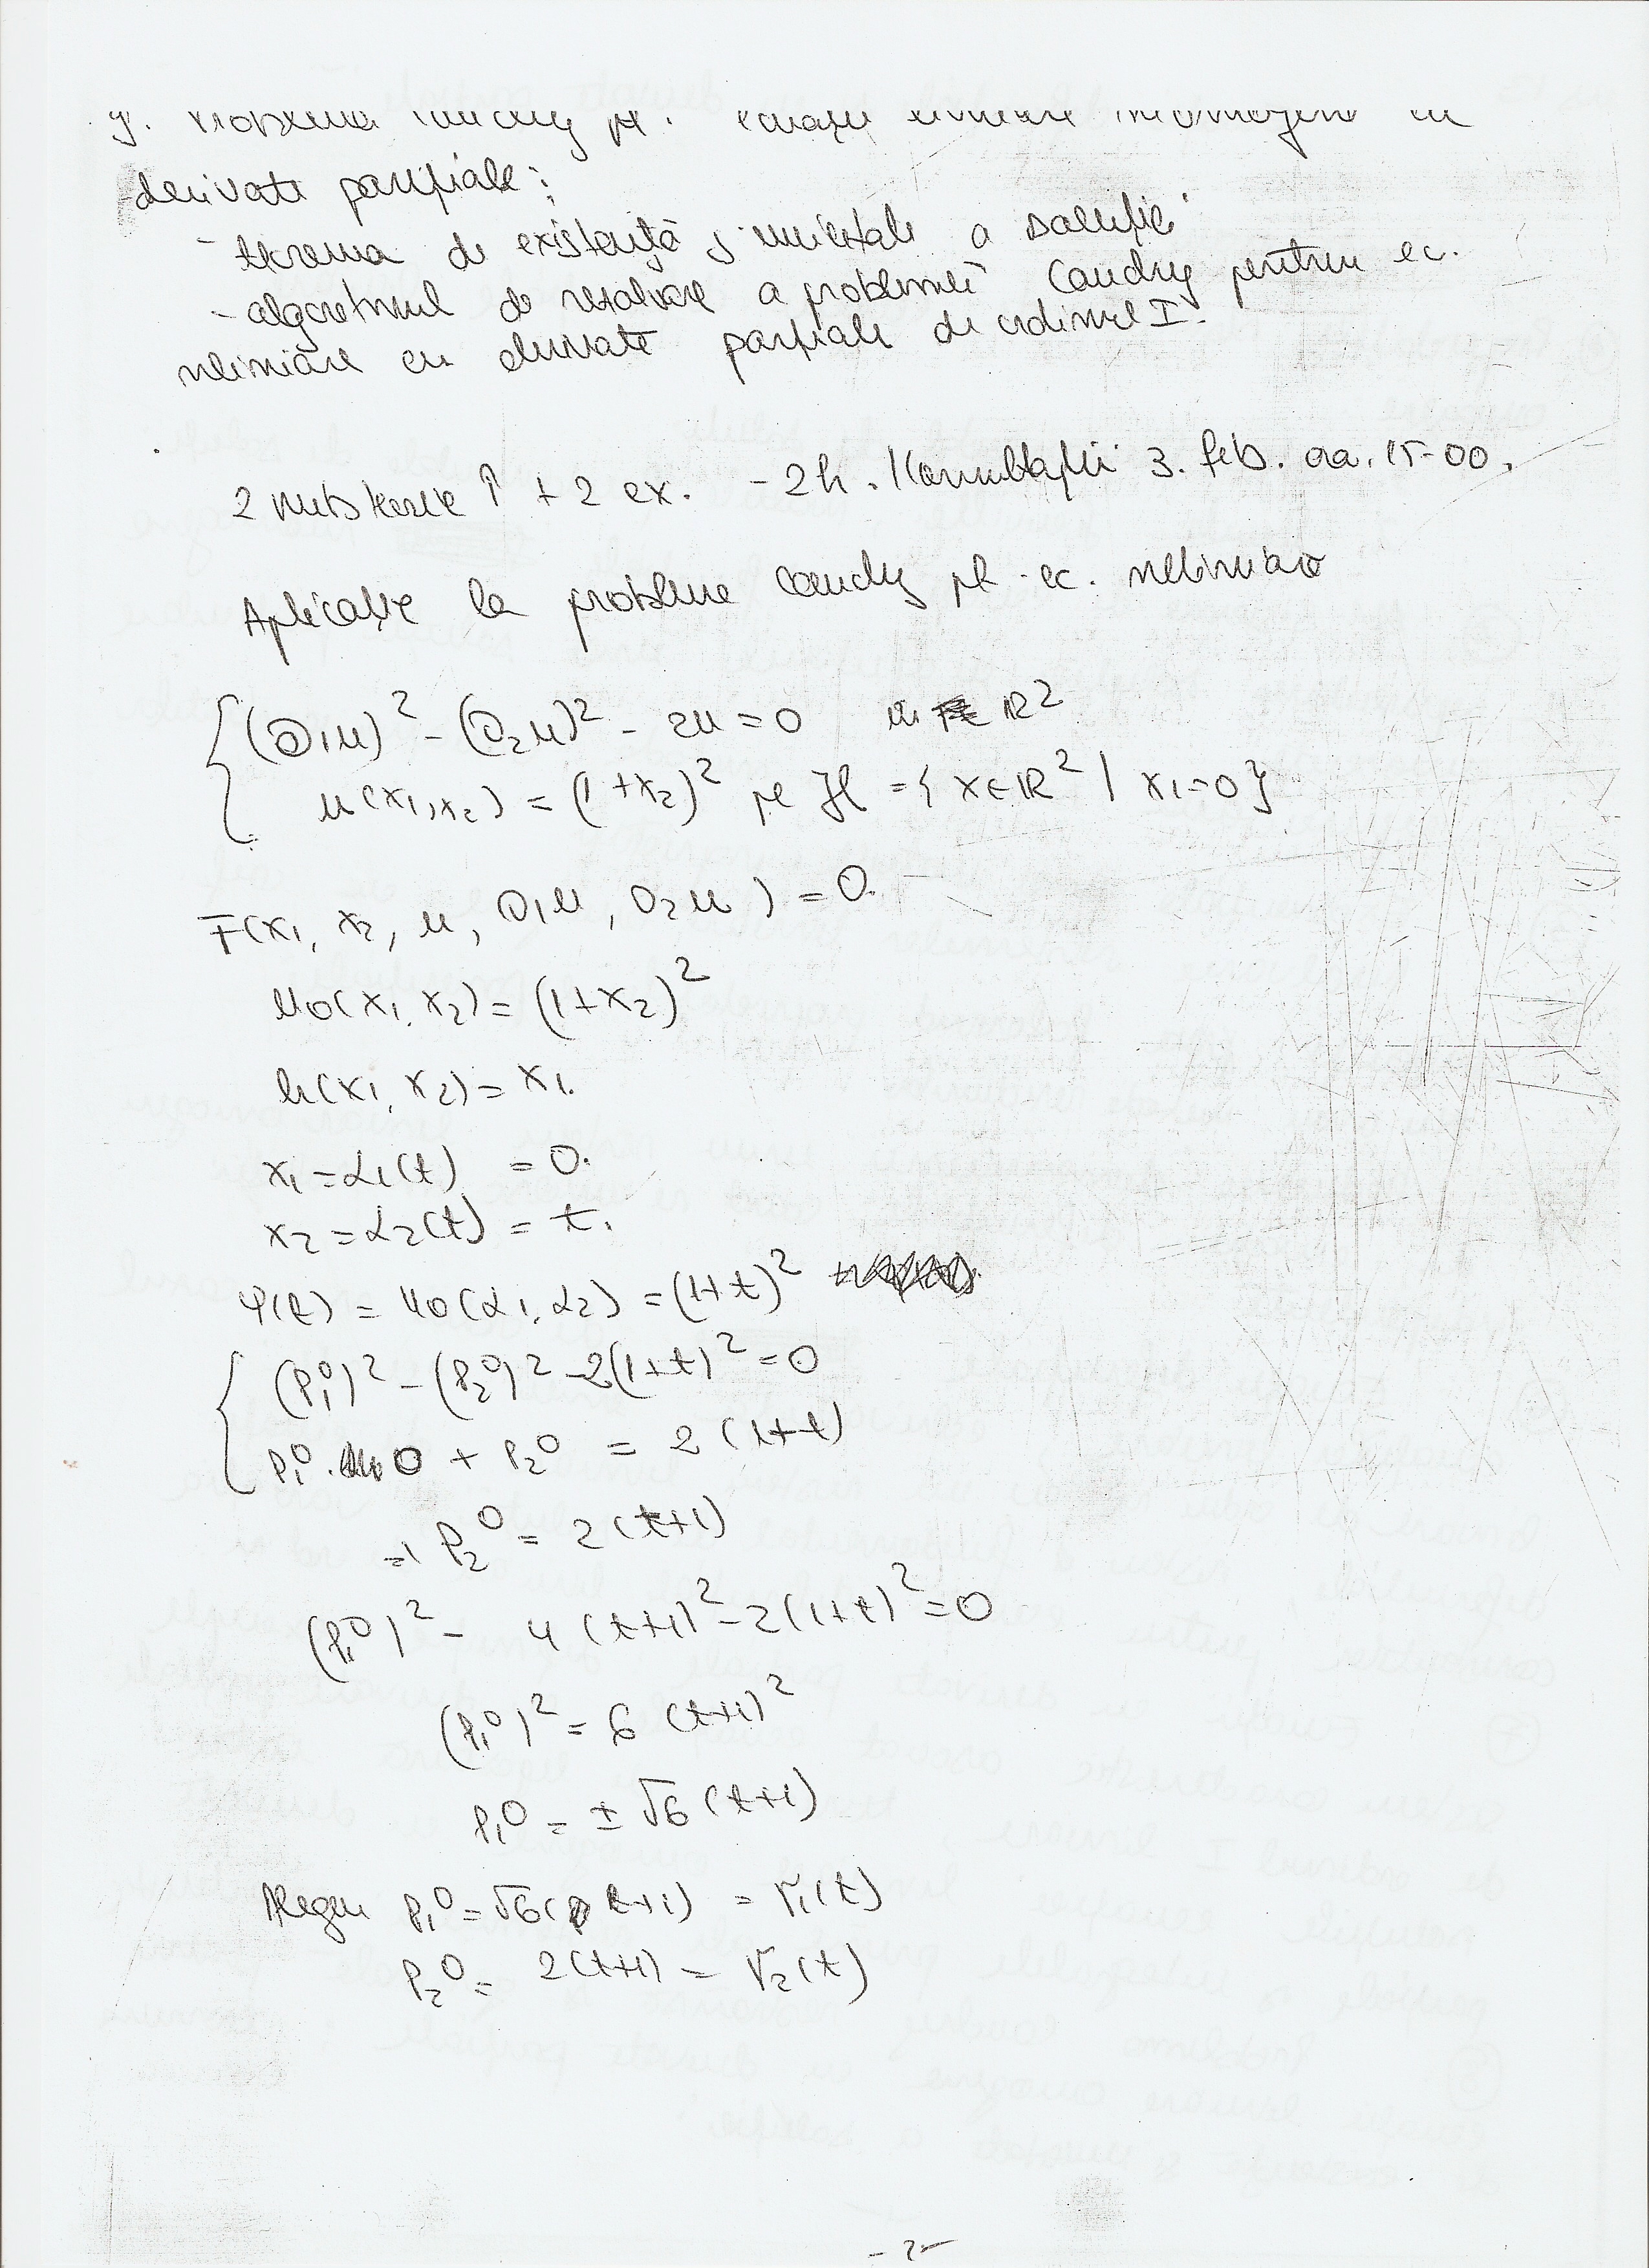 9. Problema Cauchy pt. ecuații liniare neomogene cu
derivate parțiale:
- teorema de existență și unicitate a soluției
- algoritmul de rezolvare a problemei Cauchy pentru ec.
neliniare cu derivate parțiale de ordinul I.
2 subiecte T + 2 ex. - 2h. Consultații 3. feb. ora. 15-00.
Aplicație la probleme Cauchy pt. ec. neliniare
(D₁u)² - (D₂u)² - 2u = 0 în ℝ²
u(x₁,x₂) = (1+x₂)² pe H = { x∈ℝ² | x₁=0 }
F(x₁, x₂, u, D₁u, D₂u) = 0.
u₀(x₁, x₂) = (1+x₂)²
h(x₁, x₂) = x₁.
x₁ = α₁(t) = 0.
x₂ = α₂(t) = t.
φ(t) = u₀(α₁, α₂) = (1+t)²
(p₁⁰)² - (p₂⁰)² - 2(1+t)² = 0
p₁⁰ · 0 + p₂⁰ = 2(1+t)
⇒ p₂⁰ = 2(t+1)
(p₁⁰)² - 4(t+1)² - 2(1+t)² = 0
(p₁⁰)² = 6(t+1)²
p₁⁰ = ± √6 (t+1)
Alegem p₁⁰ = √6(t+1) = γ₁(t)
p₂⁰ = 2(t+1) = γ₂(t)